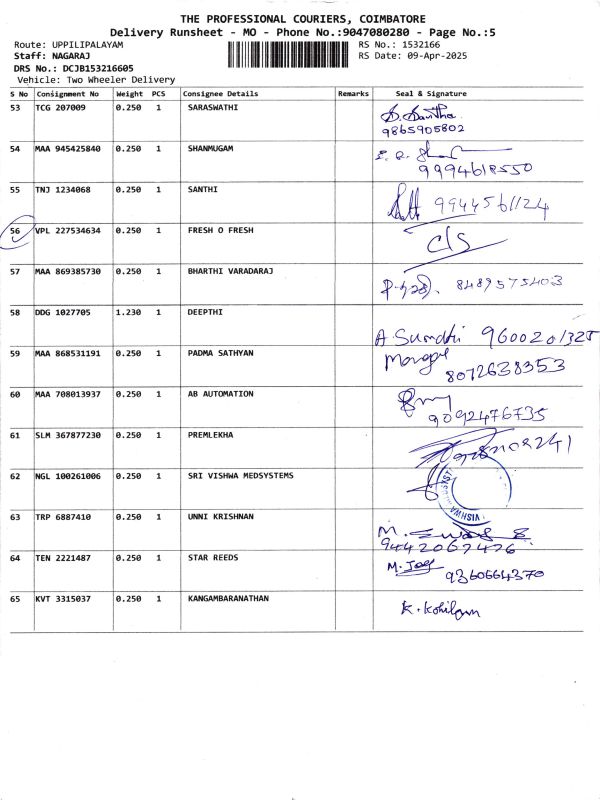 THE PROFESSIONAL COURIERS, COIMBATORE
Delivery Runsheet - MO - Phone No.:9047080280 - Page No.:5
Route: UPPILIPALAYAM RS No.: 1532166
Staff: NAGARAJ RS Date: 09-Apr-2025
DRS No.: DCJB153216605
Vehicle: Two Wheeler Delivery
S No Consignment No Weight PCS Consignee Details Remarks Seal & Signature
53 TCG 207009 0.250 1 SARASWATHI
9865905802
54 MAA 945425840 0.250 1 SHANMUGAM
9994618550
55 TNJ 1234068 0.250 1 SANTHI 9944561124
56 VPL 227534634 0.250 1 FRESH O FRESH C/S
57 MAA 869385730 0.250 1 BHARTHI VARADARAJ 8489575403
58 DDG 1027705 1.230 1 DEEPTHI
A Sumathi 9600201325
59 MAA 868531191 0.250 1 PADMA SATHYAN
8072638353
60 MAA 708013937 0.250 1 AB AUTOMATION
9092476735
61 SLM 367877230 0.250 1 PREMLEKHA
62 NGL 100261006 0.250 1 SRI VISHWA MEDSYSTEMS
VISHWA
63 TRP 6887410 0.250 1 UNNI KRISHNAN
9442062426
64 TEN 2221487 0.250 1 STAR REEDS M. Jay
9360664370
65 KVT 3315037 0.250 1 KANGAMBARANATHAN